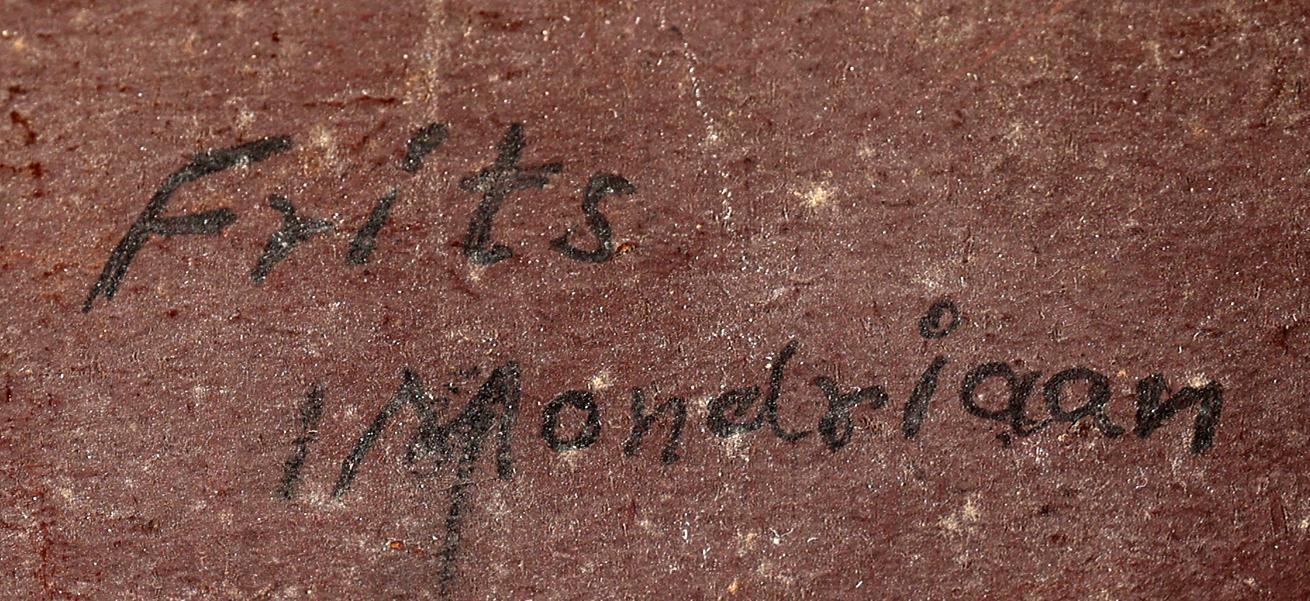 Frits
Mondriaan